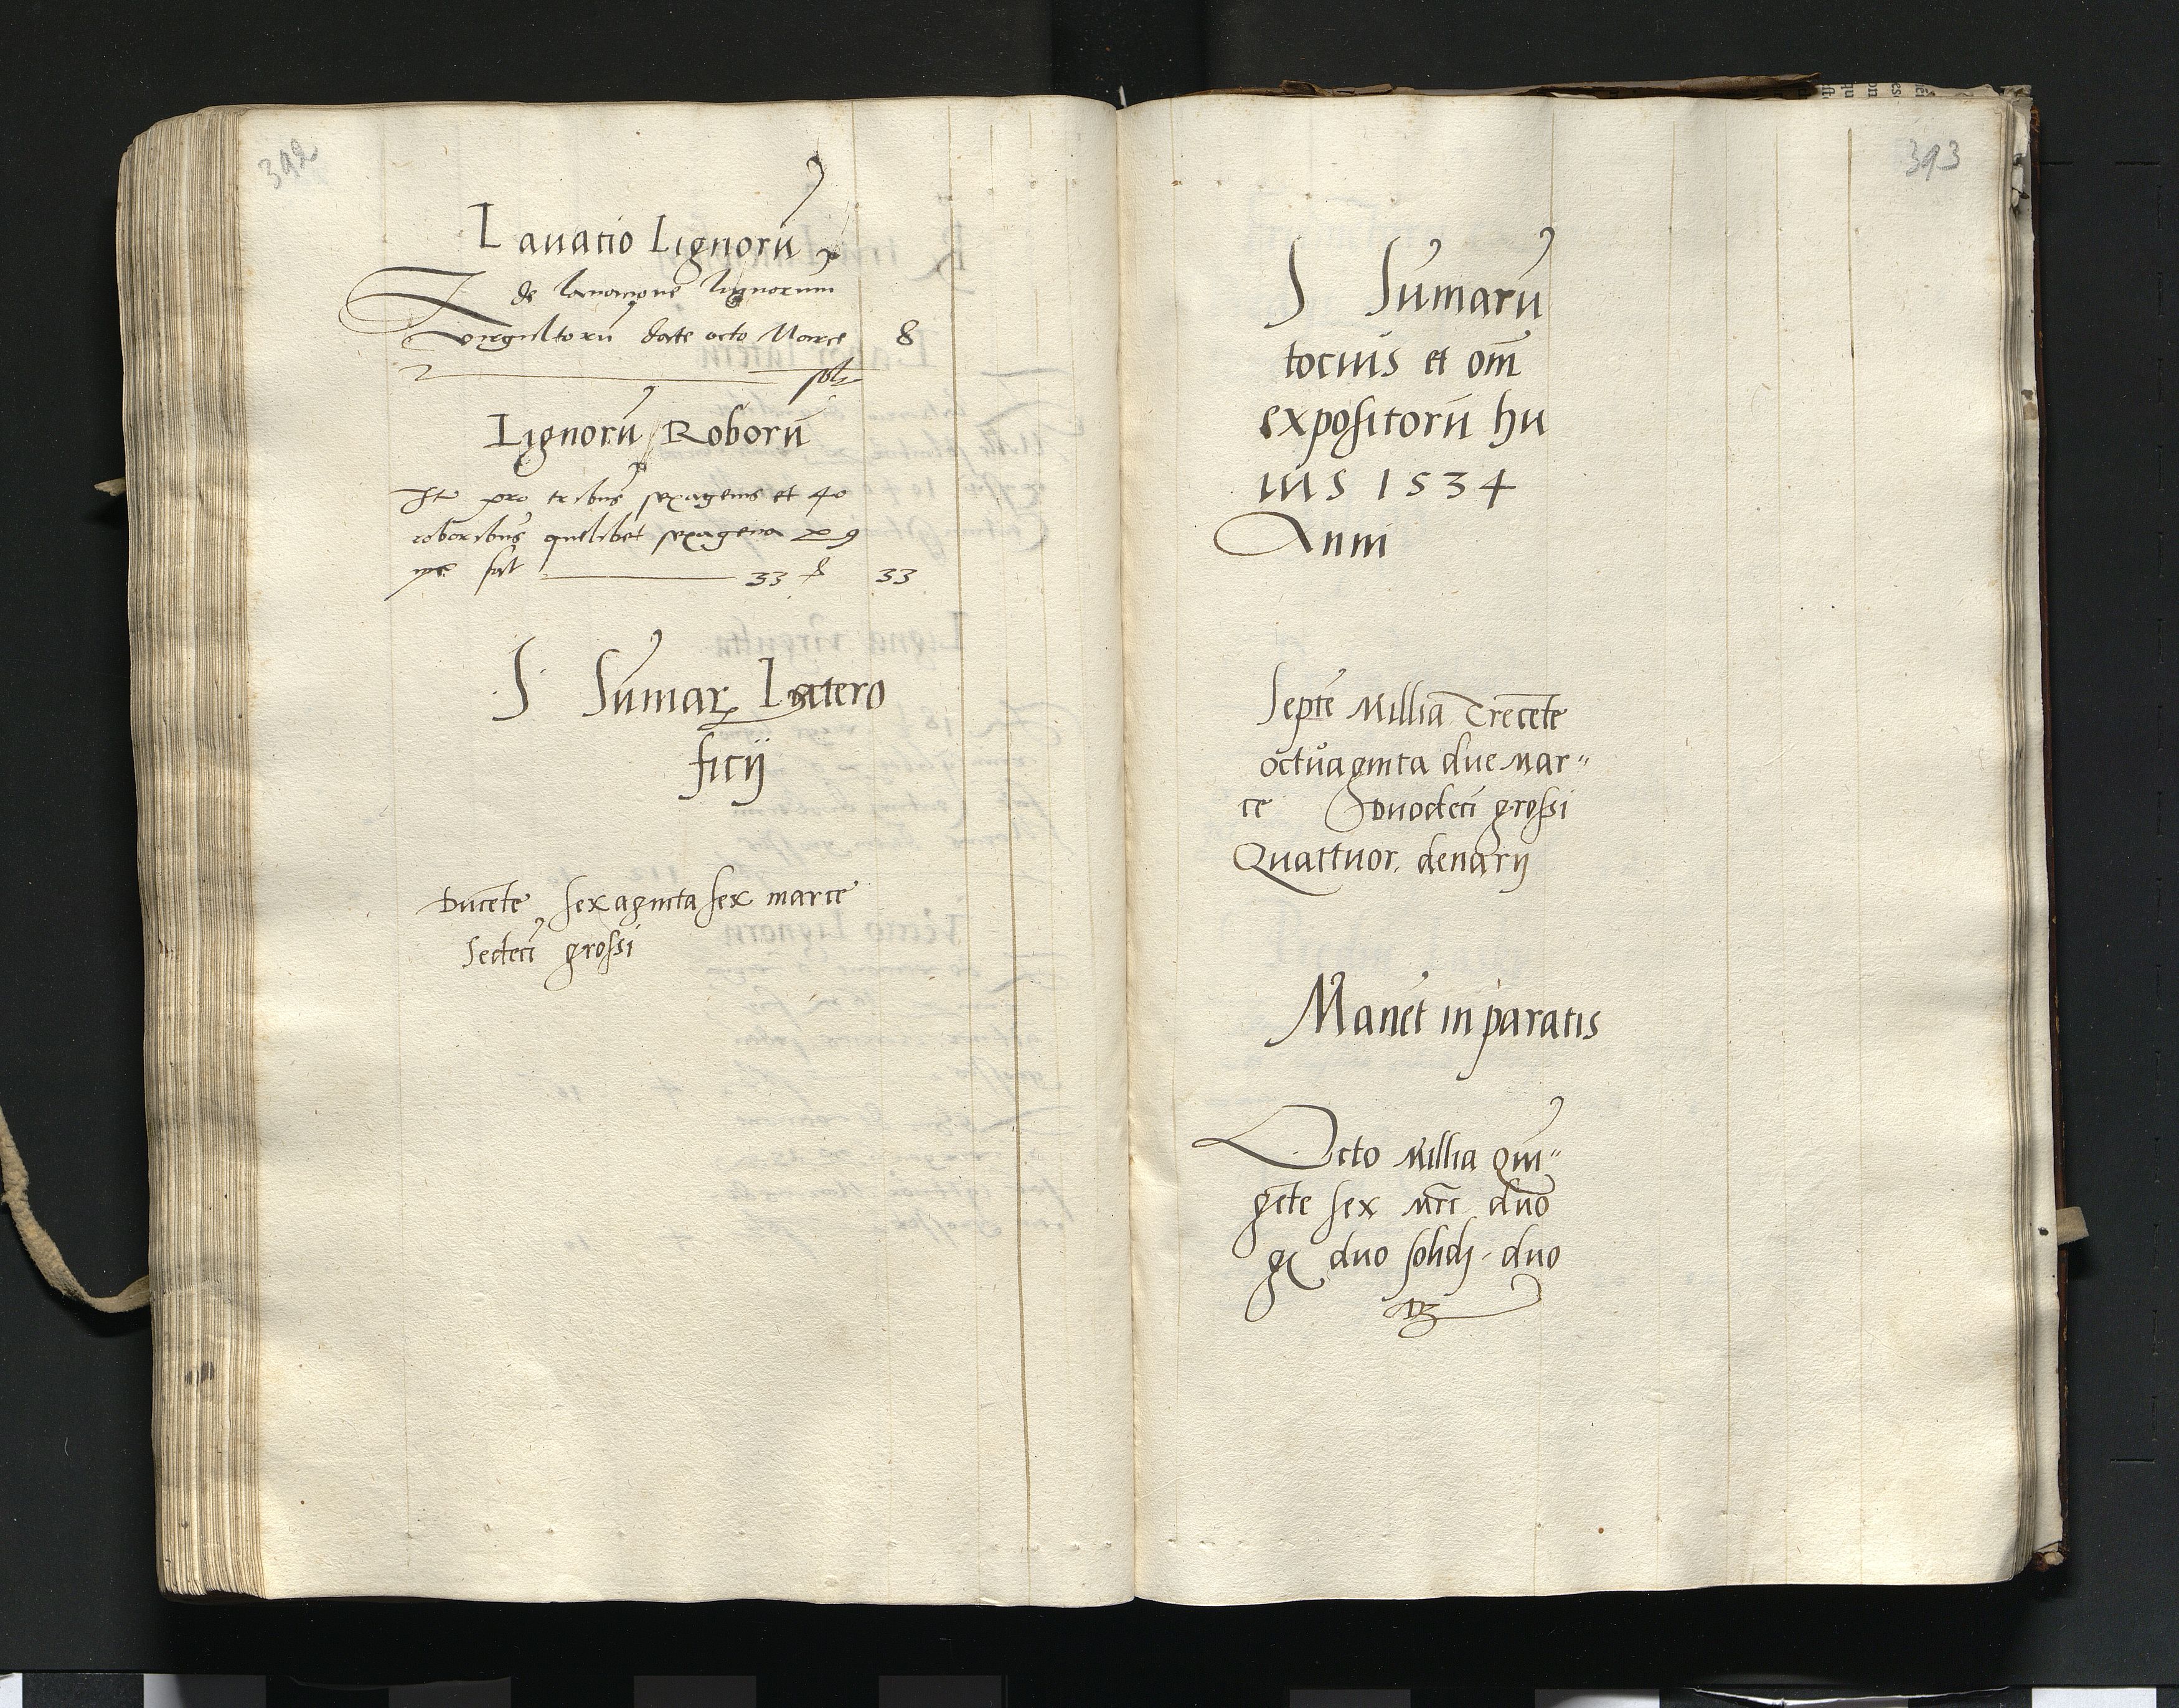 392
Lauatio Lignorū
de lauacione lignorum
virgultorū date octo Marce 8
solz
Lignorū Roborū
Itē pro tribus sexagenis et 40
roboribus quelibet sexagena 9
mrc fact 33 33
S Sūmar Latero
ficij
Ducēte sexaginta sex marce
Sedecī grossi
393
S Sūmarū
tocius et om̄
expositorū hu
ius 1534
Anni
Septē Millia Trecēte
octuaginta due Mar"
ce Duodecī grossi
Quattuor denarij
Manēt in paratis
Octo Millia qui"
gēte sex mrc duo
g duo solidj duo